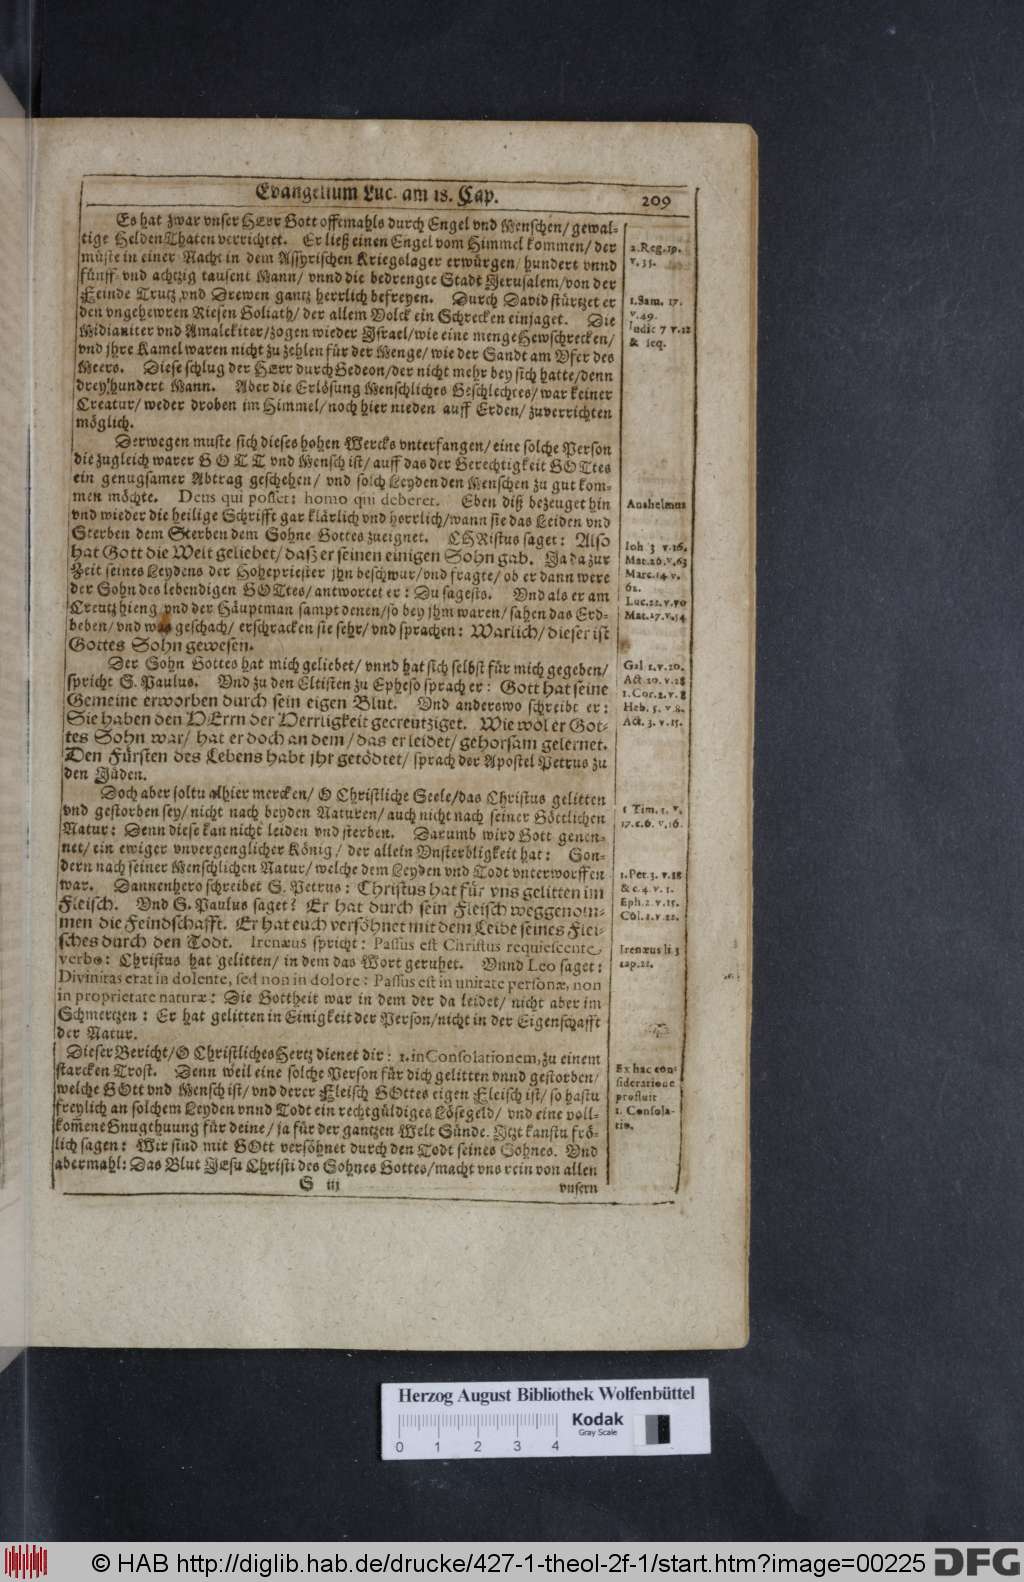 Evangelium Luc. am 18. Cap.
209
Es hat zwar vnser HErr Gott offtmahls durch Engel vnd Menschen/ gewal-
tige HeldenThaten verrichtet. Er ließ einen Engel vom Himmel kommen/ der
müste in einer Nacht in dem Assyrischen Kriegslager erwürgen/ hundert vnnd
fünff vnd achtzig tausent Mann/ vnnd die bedrengte Stadt Jerusalem/ von der
Feinde Trutz vnd Drewen gantz herrlich befreyen. Durch David stürtzet er
den vngehewren Riesen Goliath/ der allem Volck ein Schrecken einjaget. Die
Midianiter vnd Amalekiter/ zogen wieder Israel/ wie eine menge Hewschrecken/
vnd jhre Kamel waren nicht zu zehlen für der Menge/ wie der Sandt am Vfer des
Meers. Diese schlug der HErr durch Gedeon/ der nicht mehr bey sich hatte/ denn
drey hundert Mann. Aber die Erlösung Menschliches Geschlechtes/ war keiner
Creatur/ weder droben im Himmel/ noch hier nieden auff Erden/ zuverrichten
möglich.
Derwegen muste sich dieses hohen Wercks vnterfangen/ eine solche Person
die zugleich warer GOTT vnd Mensch ist/ auff das der Gerechtigkeit GOTtes
ein genugsamer Abtrag geschehen/ vnd solch Leyden den Menschen zu gut kom-
men möchte. Deus qui posset: homo qui deberet. Eben diß bezeuget hin
vnd wieder die heilige Schrifft gar klärlich vnd herrlich/ wann sie das Leiden vnd
Sterben dem Sterben dem Sohne Gottes zueignet. CHRistus saget: Also
hat Gott die Welt geliebet/ daß er seinen einigen Sohn gab. Ja da zur
Zeit seines Leydens der Hohepriester jhn beschwur/ vnd fragte/ ob er dann were
der Sohn des lebendigen GOTtes/ antwortet er: Du sagests. Vnd als er am
Creutz hieng vnd der Häuptman sampt denen/ so bey jhm waren/ sahen das Erd-
beben/ vnd was geschach/ erschracken sie sehr/ vnd sprachen: Warlich/ dieser ist
Gottes Sohn gewesen.
Der Sohn Gottes hat mich geliebet/ vnnd hat sich selbst für mich gegeben/
spricht S. Paulus. Vnd zu den Eltisten zu Epheso sprach er: Gott hat seine
Gemeine erworben durch sein eigen Blut. Vnd anderswo schreibt er:
Sie haben den HErrn der Herrligkeit gecreutziget. Wie wol er Got-
tes Sohn war/ hat er doch an dem/ das er leidet/ gehorsam gelernet.
Den Fürsten des Lebens habt jhr getödtet/ sprach der Apostel Petrus zu
den Jüden.
Doch aber soltu alhier mercken/ O Christliche Seele/ das Christus gelitten
vnd gestorben sey/ nicht nach beyden Naturen/ auch nicht nach seiner Göttlichen
Natur: Denn diese kan nicht leiden vnd sterben. Darumb wird Gott genen-
net/ ein ewiger vnvergenglicher König/ der allein Vnsterbligkeit hat: Son-
dern nach seiner Menschlichen Natur/ welche dem Leyden vnd Todt vnterworffen
war. Dannenhero schreibet S. Petrus: Christus hat für vns gelitten im
Fleisch. Vnd S. Paulus saget? Er hat durch sein Fleisch weggenom-
men die Feindschafft. Er hat euch versöhnet mit dem Leibe seines Flei-
sches durch den Todt. Irenæus spricht: Passus est Christus requiescente
verbo: Christus hat gelitten/ in dem das Wort geruhet. Vnnd Leo saget:
Divinitas erat in dolente, sed non in dolore: Passus est in unitate personæ, non
in proprietate naturæ: Die Gottheit war in dem der da leidet/ nicht aber im
Schmertzen: Er hat gelitten in Einigkeit der Person/ nicht in der Eigenschafft
der Natur.
Dieser Bericht/ O Christliches Hertz dienet dir: 1. in Consolationem, zu einem
starcken Trost. Denn weil eine solche Person für dich gelitten vnnd gestorben/
welche GOtt vnd Mensch ist/ vnd derer Fleisch GOttes eigen Fleisch ist/ so hastu
freylich an solchem Leyden vnnd Todt ein rechtgüldiges Lösegeld/ vnd eine voll-
kom̃ene Gnugthuung für deine/ ja für der gantzen Welt Sünde. Jtzt kanstu frö-
lich sagen: Wir sind mit GOtt versöhnet durch den Todt seines Sohnes. Vnd
abermahl: Das Blut JEsu Christi des Sohnes Gottes/ macht vns rein von allen
S iij
vnsern
2. Reg. 19.
v. 35.
1. Sam. 17.
v. 49.
Iudic 7 v. 12
& seq.
Anshelmus
Ioh 3 v. 16.
Mat. 26. v. 63
Marc. 14 v.
62.
Luc. 22. v. 70
Mat. 27. v. 54
Gal 2. v. 20.
Act 20. v. 28
1. Cor. 2. v. 8
Heb. 5. v. 8.
Act. 3. v. 15.
1 Tim. 1. v.
17. c. 6. v. 16.
1. Pet. 3. v. 18
& c. 4. v. 1.
Eph. 2. v. 15.
Col. 1. v. 22.
Irenæus li. 3
cap. 21.
Ex hac con-
sideratione
profluit
1. Consola-
tio.
Herzog August Bibliothek Wolfenbüttel
Kodak
Gray Scale
0 1 2 3 4
© HAB http://diglib.hab.de/drucke/427-1-theol-2f-1/start.htm?image=00225
DFG